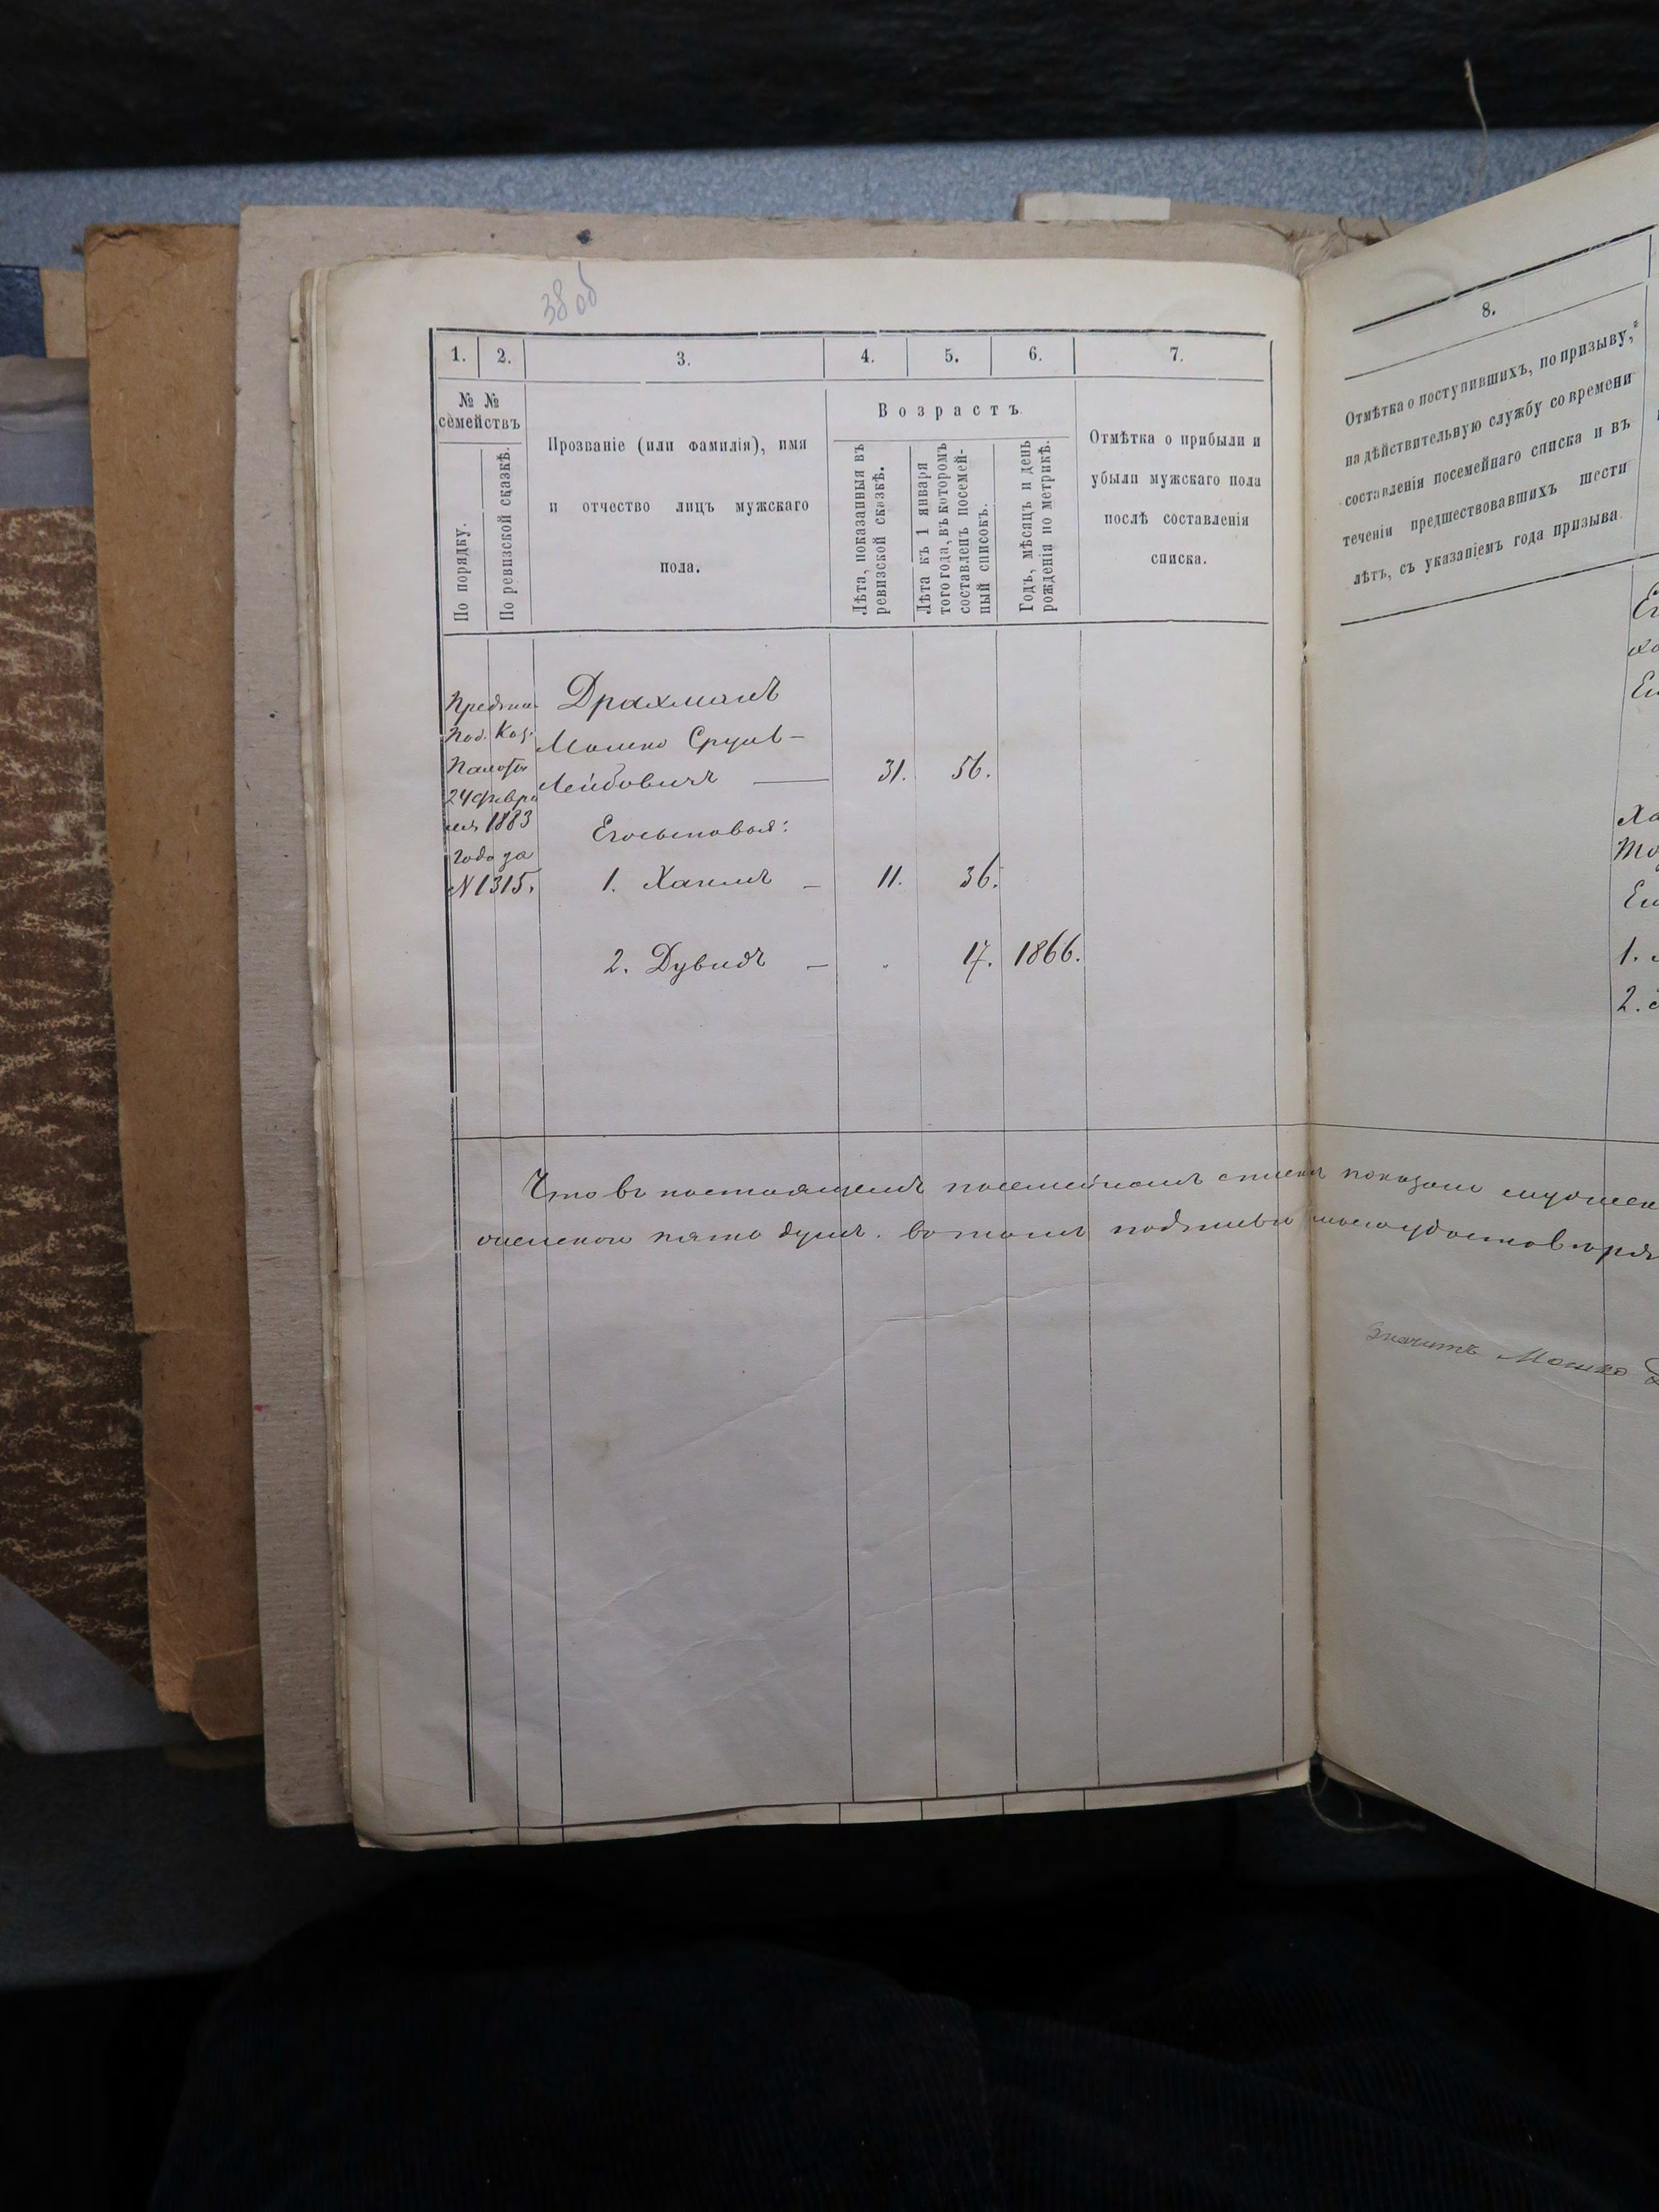 38 об
1. 2. 3. 4. 5. 6. 7.
№ № семействъ
По порядку.
По ревизской сказкѣ.
Прозваніе (или Фамилія), имя
и отчество лицъ мужскаго
пола.
Возрастъ
Лѣта, показанныя въ
ревизской сказкѣ.
Лѣта къ 1 января
того года, въ которомъ
составленъ посемей-
ный списокъ.
Годъ, мѣсяцъ и день
рожденія по метрикѣ.
Отмѣтка о прибыли и
убыли мужскаго пола
послѣ составленія
списка.
Предпи.
Под. Каз:
Палаты
24 Февра
ля 1883
Года за
N 1315.
Драхманъ
Мошко Сруль-
Лейбовичъ — 31. 56.
Его сыновья:
1. Хаимъ — 11. 36.
2. Дувидъ — 17. 1866.
Что въ настоящемъ посемейномъ списке показано
пять душъ. въ томъ подписью
8.
Отмѣтка о поступившихъ, по призыву,
на дѣйствительную службу со времени
составленія посемейнаго списка и въ
теченіи предшествовавшихъ шести
лѣтъ, съ указаніемъ года призыва.
1.
2.
Значитъ Мошко